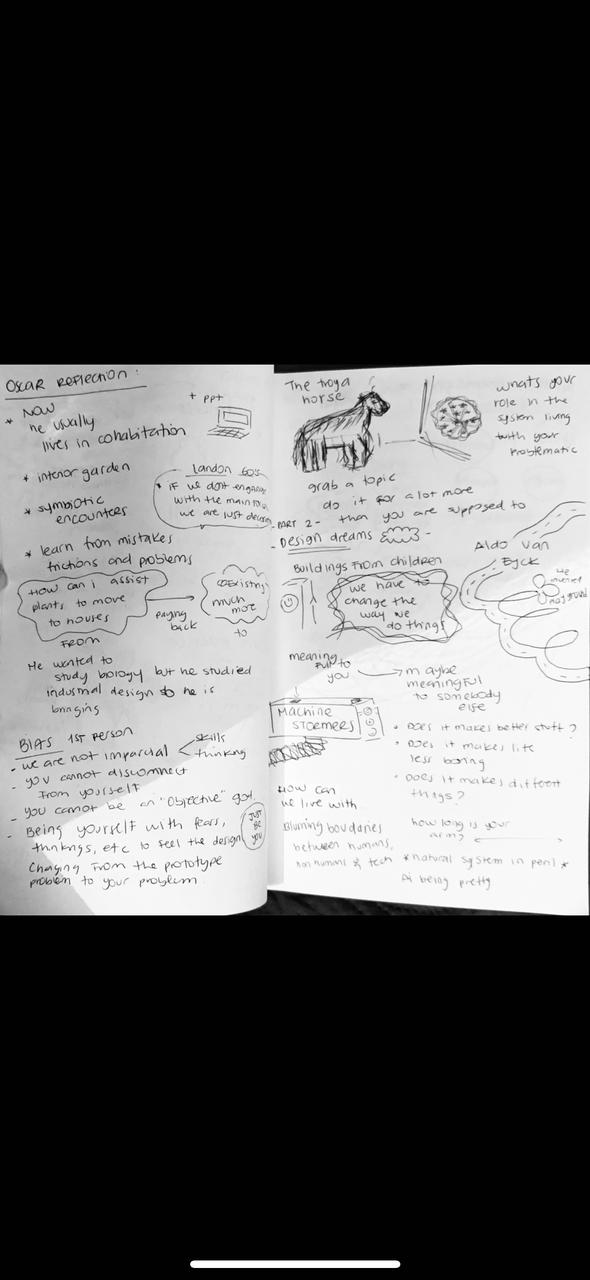 OSCAR REFLECTION:
* NOW
he usually
lives in cohabitation
+ PPT
* interior garden
* symbiotic
encounters
* learn from mistakes
frictions and problems
Landon
* if we dont engage
with the main
we are just
How can i assist
plants to move
to houses
FROM
paying
back
coexisting
much
more
to
He wanted to
study biology but he studied
industrial design so he is
bringing
BIAS 1ST PERSON
- we are not imparcial
skills
thinking
- you cannot disconnect
from yourself
- you cannot be an "objective" god.
- Being yourself with fears,
thinkngs, etc to feel the design
JUST
BE
YOU
Changing from the prototype
problem to your problem.
The troya
horse
whats your
role in the
system living
with your
problematic
grab a topic
do it for a lot more
than you are supposed to
- PART 2 -
- Design dreams -
Buildings from children
we have to
change the
way we
do things
Aldo Van
Eyck
He
invented
playground
meaning
full to
you
maybe
meaningful
to somebody
else
MACHINE
STORMERS
* Does it makes better stuff?
* Does it makes life
less boring
* Does it makes different
things?
How can
we live with
Blurring boudaries
between humans,
non humans & tech
how long is your
arm?
* natural system in peril *
Ai being pretty